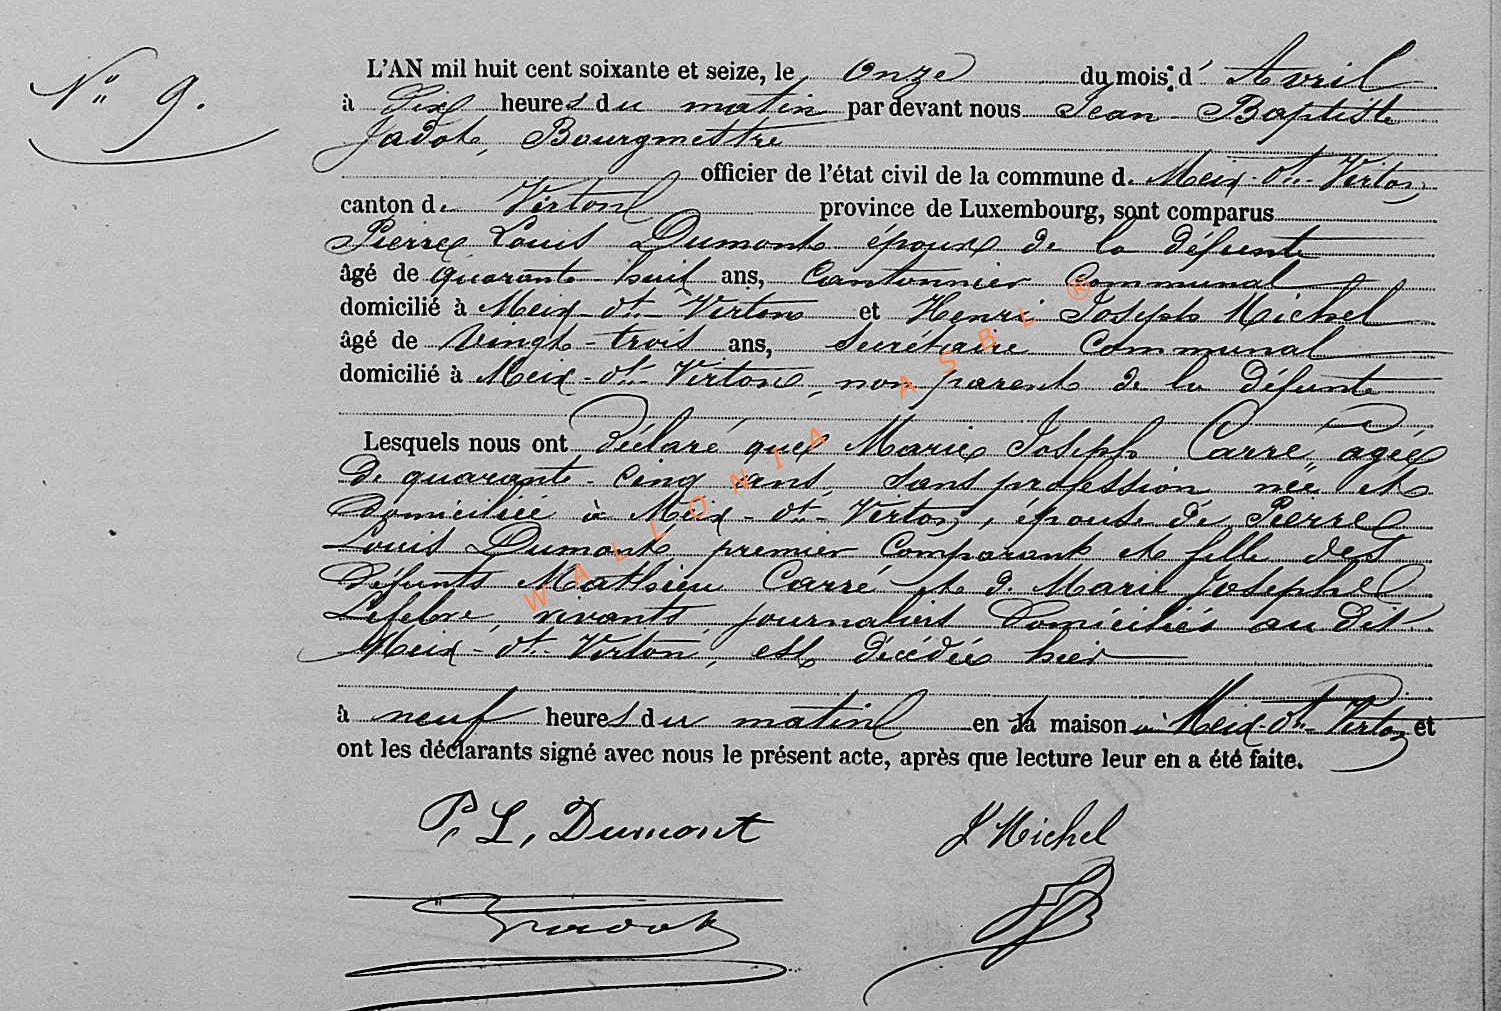 N° 9.
L'AN mil huit cent soixante et seize, le onze du mois d' Avril
à dix heures du matin par devant nous Jean Baptiste
Jadot, Bourgmestre
officier de l'état civil de la commune de Meix-dt-Virton,
canton de Virton province de Luxembourg, sont comparus
Pierre Louis Dumont époux de la défunte
âgé de quarante huit ans, Cantonnier Communal
domicilié à Meix-dt-Virton et Henri Joseph Michel
âgé de vingt-trois ans, Secrétaire Communal
domicilié à Meix-dt-Virton, non parent de la défunte
Lesquels nous ont déclaré que Marie Joseph Carré, agée
de quarante-cinq ans, sans profession, née et
domiciliée à Meix-dt-Virton, épouse de Pierre
Louis Dumont, premier Comparant et fille des
défunts Mathieu Carré et d. Marie Josephe
Lefebvre, vivants journaliers domiciliés au dit
Meix-dt-Virton, est décédée hier
à neuf heures du matin en sa maison à Meix-dt-Virton et
ont les déclarants signé avec nous le présent acte, après que lecture leur en a été faite.
P. L. Dumont J Michel
Jadot
WALLONIA ASBL ®